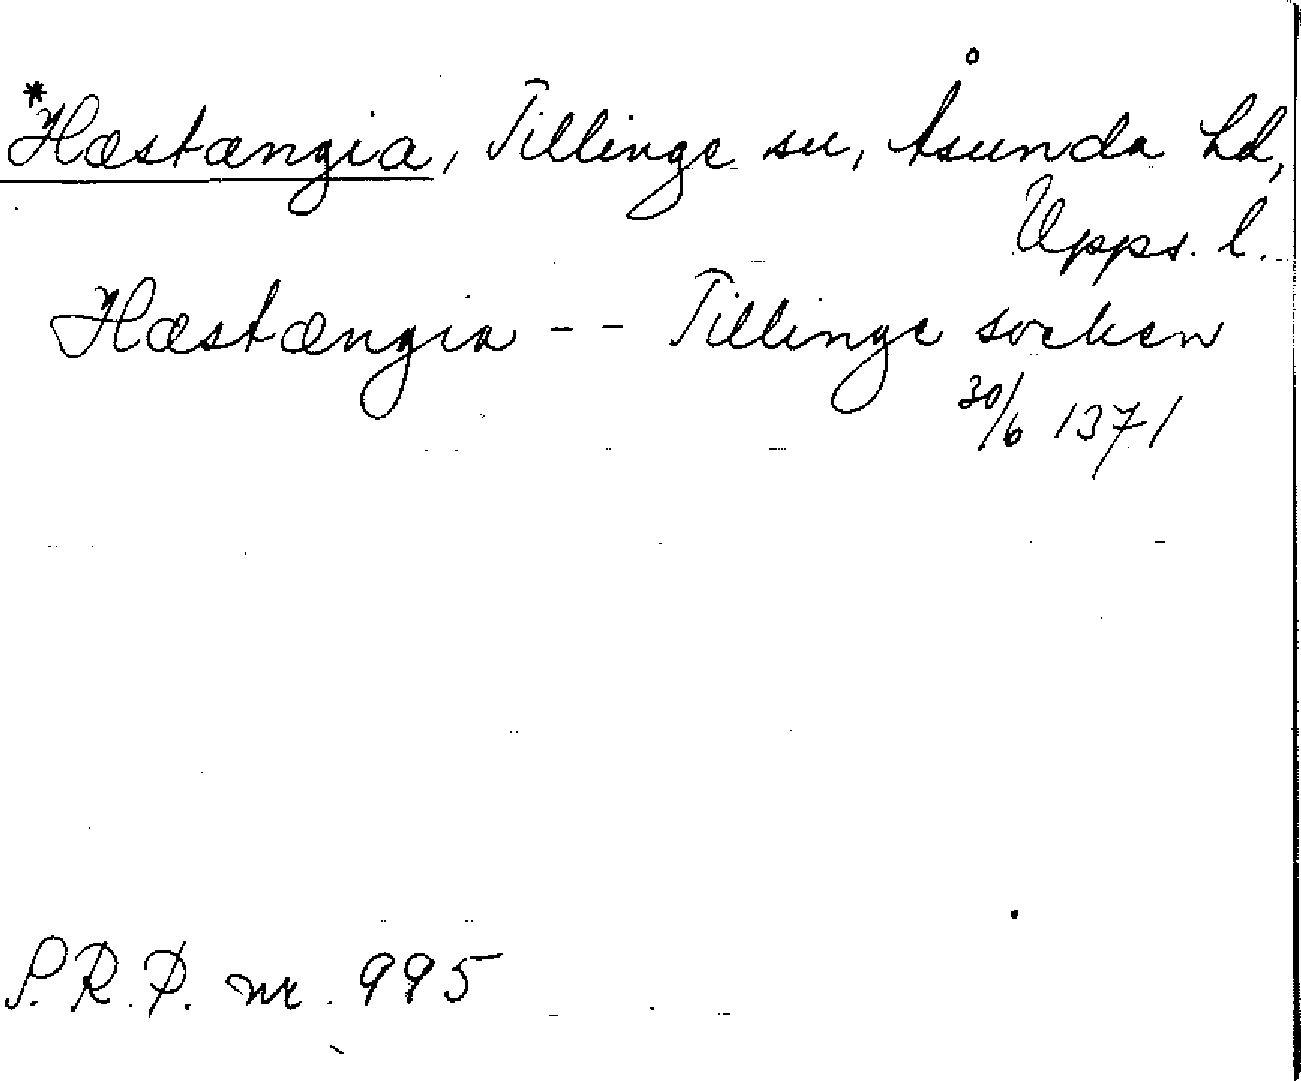 *Hæstængia, Tillinge sn, Åsunda hd,
Upps. l.
Hæstængia - - Tillinge socken
30/6 1371
S.R.P. nr. 995